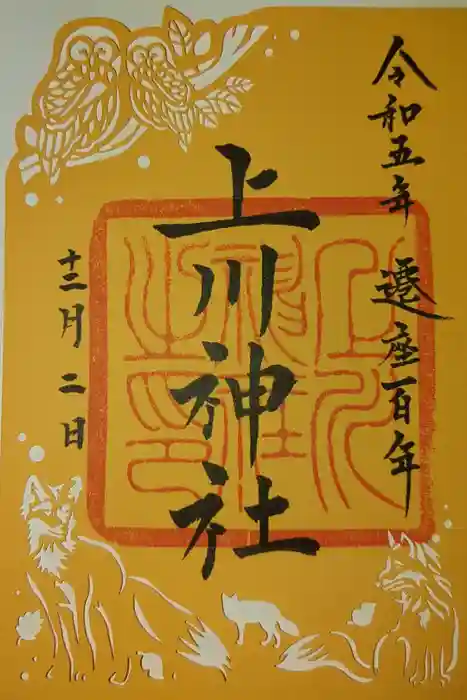 令和五年 遷座百年
上川神社
十二月二日